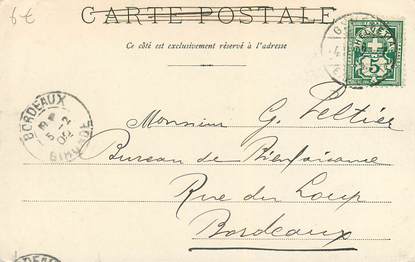 6€
CARTE POSTALE
Ce côté est exclusivement réservé à l'adresse
HELVETIA
5
BORDEAUX
GIRONDE
Monsieur G. Peltier
Bureau de Bienfaisance
Rue du Loup
Bordeaux